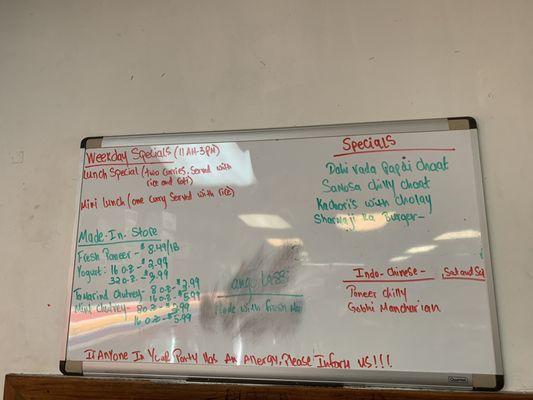 Weekday Specials (11 AM-3PM)
Lunch Special (two curries. Served with
rice and roti)
Mini Lunch (one curry Served with rice)
Made-In-Store
Fresh Paneer - $8.49/lb
Yogurt: 16 oz - $2.99
32 oz - $
Tamarind chutney 8 oz - $3.99
16 oz - $5.99
Mint chutney - 8 oz - $3.99
16 oz - $5.99
ango Lassi
Made with Fresh
Specials
Dahi vada papdi chaat
Samosa chilly chaat
Kachori's with cholay
Sharmaji Ka Burger-
Indo-Chinese -
Sat and
Paneer chilly
Gobhi Manchurian
If Anyone In Your Party Has An Allergy, Please Inform us!!!
Quartet